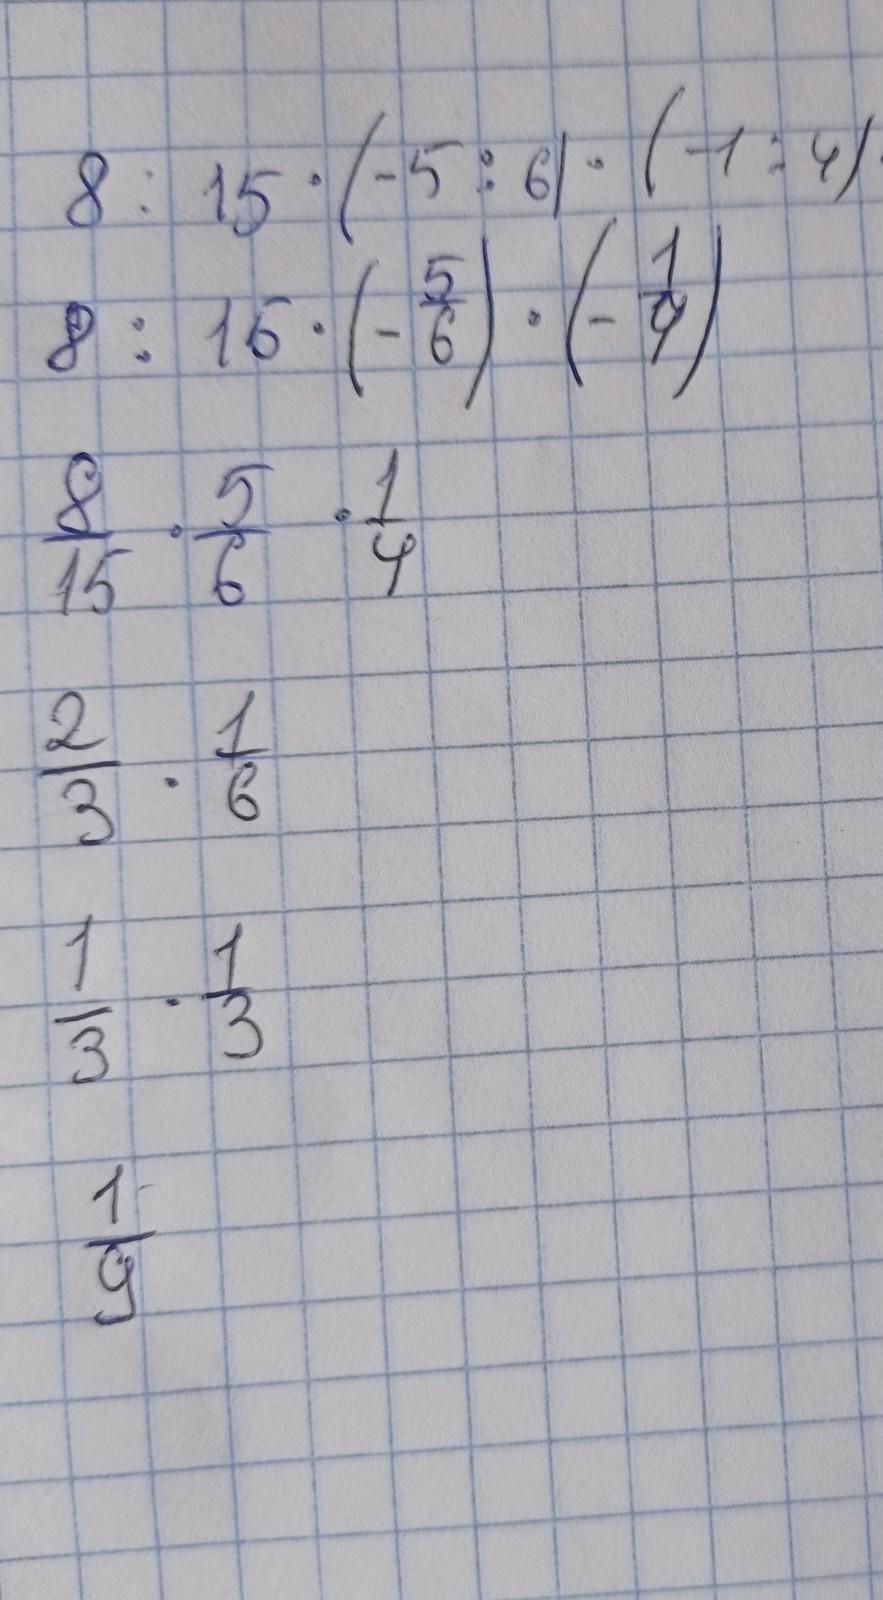 8 : 15 · (-5 : 6) · (-1 : 4)
8 : 15 · (- 5/6) · (- 1/4)
8/15 · 5/6 · 1/4
2/3 · 1/6
1/3 · 1/3
1/9